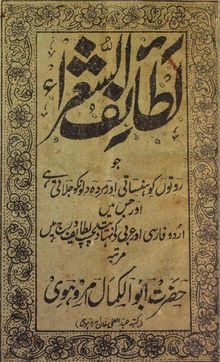 لطائف الشعراء
جو
روتوں کو ہنساتی اور مردہ دلوں کو جلاتی ہے
اور جس میں
اردو فارسی اور عربی کے نہایت لطائف درج ہیں
مرتبہ
حضرت ابوالکمال امروہوی